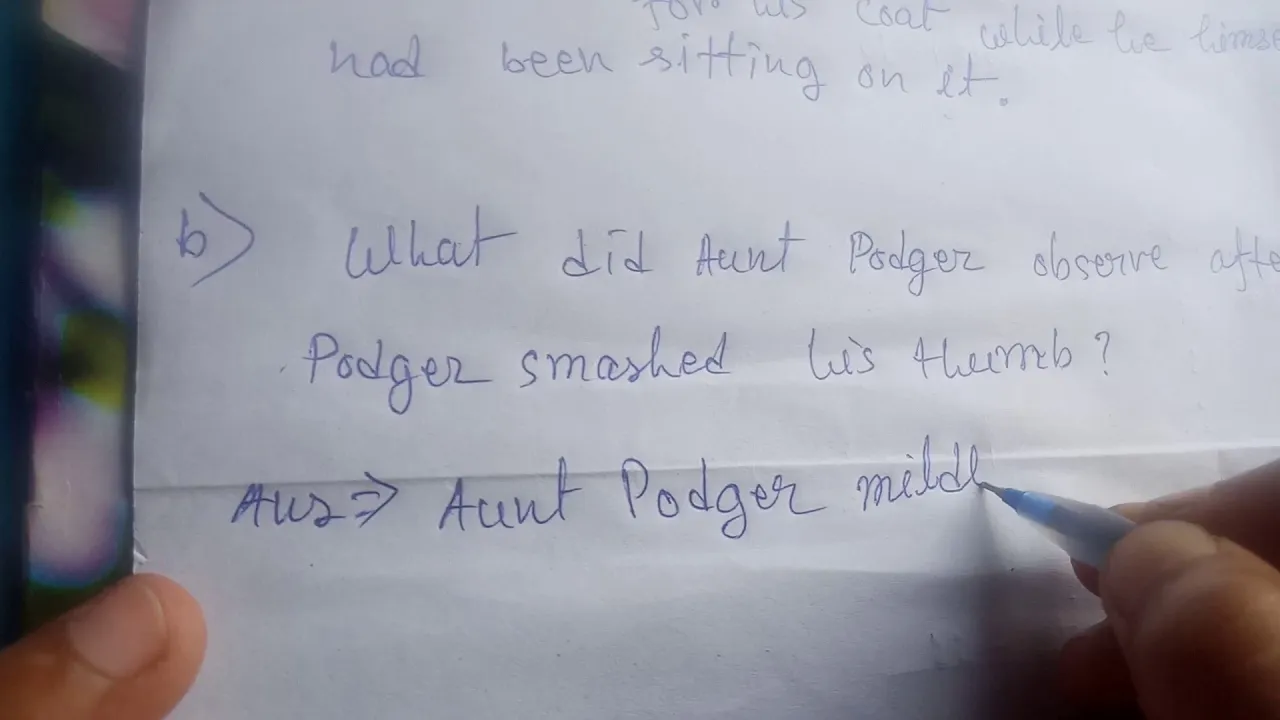 for his coat while he himse
had been sitting on it.
b) What did Aunt Podger observe afte
Podger smashed his thumb?
Ans⇒ Aunt Podger mildl